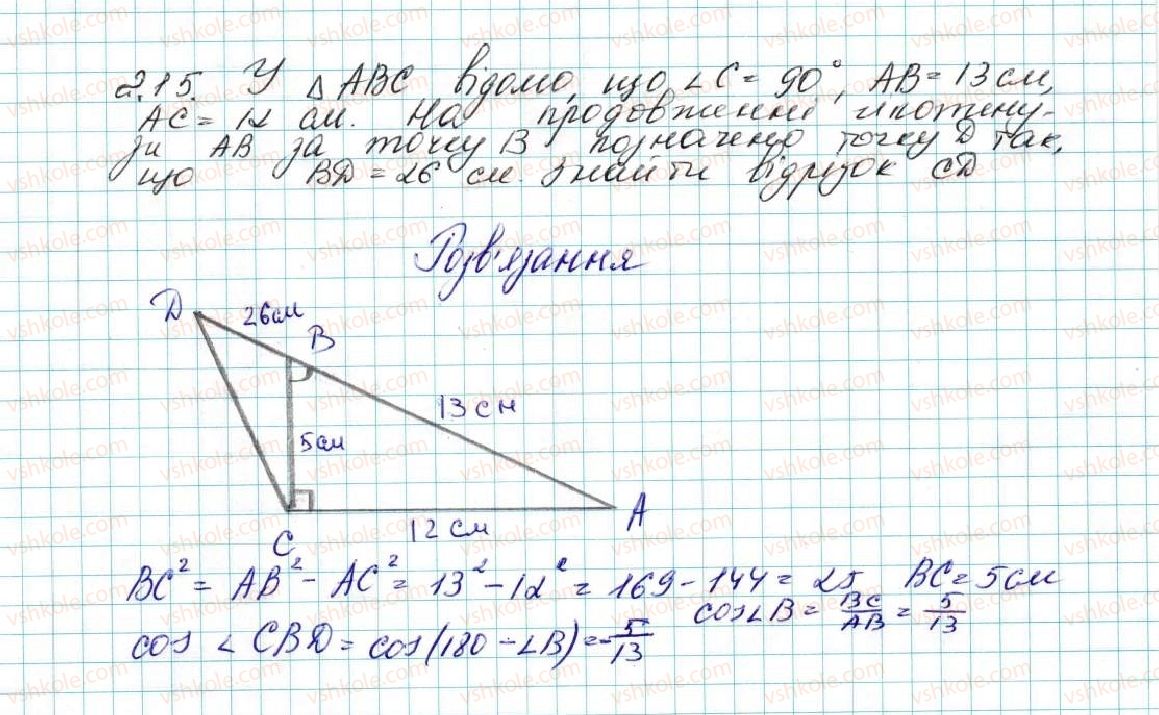 2.15. У △ABC відомо, що ∠C = 90°, AB = 13 см,
AC = 12 см. На продовженні гіпотену-
зи AB за точку B позначено точку D так,
що BD = 26 см. Знайти відрізок CD
Розв'язання
D 26см B
13 см
5см
C 12 см A
BC² = AB² - AC² = 13² - 12² = 169 - 144 = 25 BC = 5 см
cos∠B = BC/AB = 5/13
cos ∠CBD = cos(180 - ∠B) = -5/13
vshkole.com